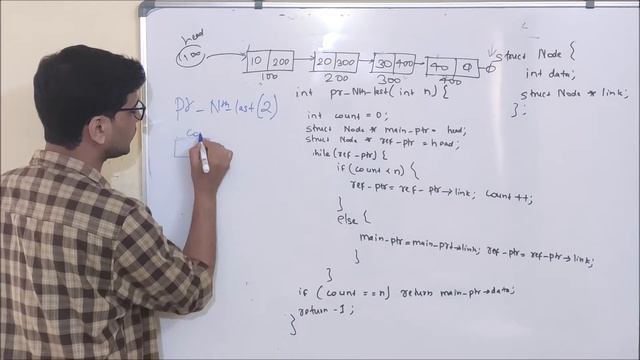 head
100
10 200
20 300
30 400
40 0
100
200
300
400
struct Node {
int data;
struct Node * link;
};
Pr_Nth_last(2)
co
int pr_Nth_last(int n) {
int count = 0;
struct Node * main_ptr = head;
struct Node * ref_ptr = head;
while (ref_ptr) {
if (count < n) {
ref_ptr = ref_ptr→link; count++;
}
else {
main_ptr = main_ptr→link; ref_ptr = ref_ptr→link;
}
}
if (count == n) return main_ptr→data;
return -1;
}